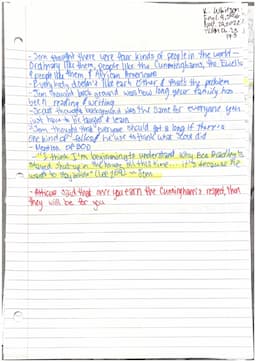 K. Whitson
- Jem thought there were four kinds of people in the world -
Ordinary like them, people like the Cunninghams, the Ewells
& people like them, & African Americans
- Everybody doesn't like each other & that's the problem
- Jem thought back ground was how long your family has
been reading & writing
- Scout thought background was the same for everyone you
just have to be taught & learn
- Jem thought that everyone should get a long if there's
one kind of folks, he use to think what Scout did
- Mention of BOO
- "I think I'm beginning to understand why Boo Radley's
stayed shut up in the house all this time... it's because he
wants to stay inside" (Lee 304) - Jem
- Atticus said that once you earn the Cunningham's respect, than
they will be for you